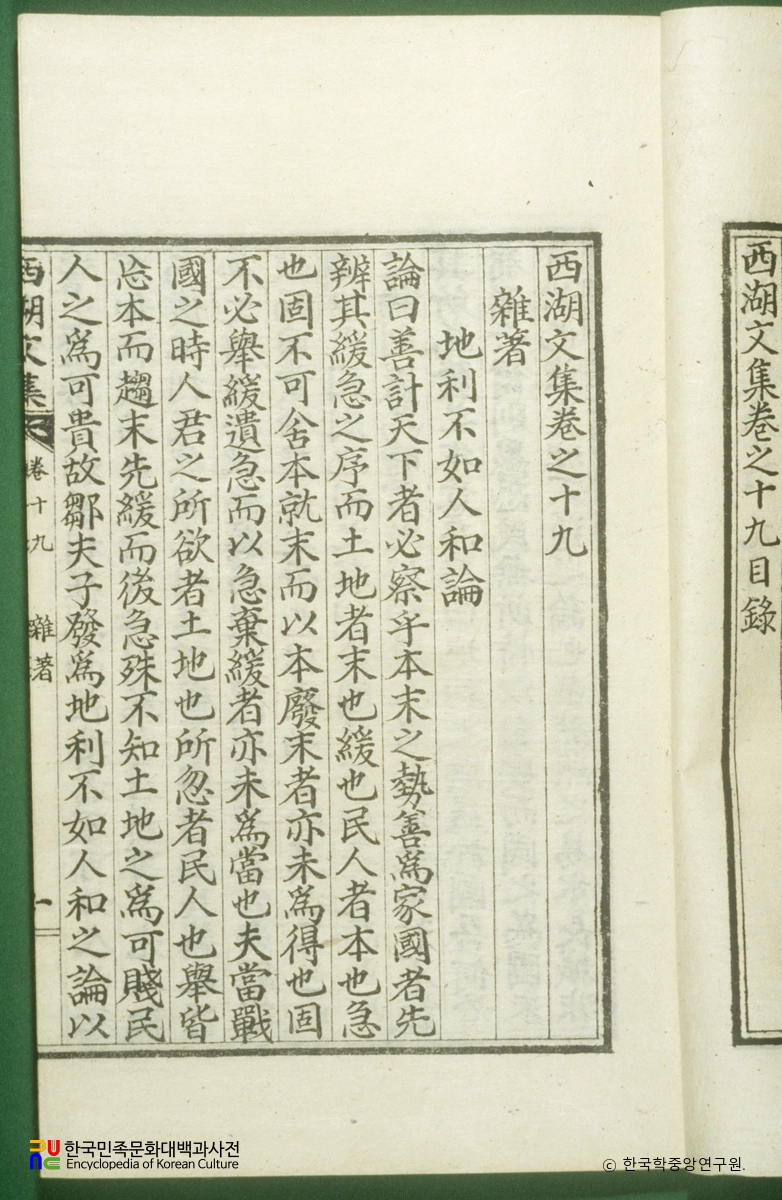 西湖文集卷之十九目錄
西湖文集卷之十九
雜著
地利不如人和論
論曰善計天下者必察乎本末之勢善爲家國者先
辨其緩急之序而土地者末也緩也民人者本也急
也固不可舍本就末而以本廢末者亦未爲得也固
不必舉緩遺急而以急棄緩者亦未爲當也夫當戰
國之時人君之所欲者土地也所忽者民人也舉皆
忘本而趨末先緩而後急殊不知土地之爲可賤民
人之爲可貴故鄒夫子發爲地利不如人和之論以
西湖文集 卷十九 雜著 一
한국민족문화대백과사전
Encyclopedia of Korean Culture
© 한국학중앙연구원.